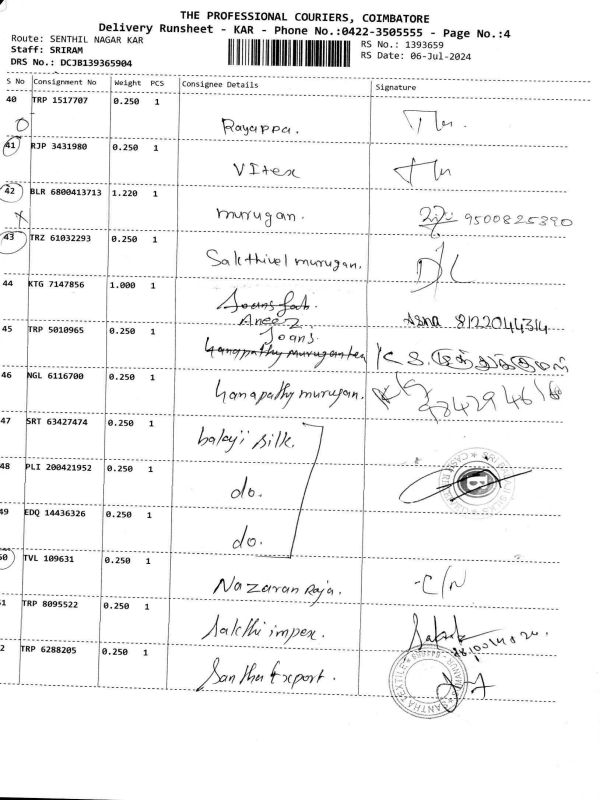 THE PROFESSIONAL COURIERS, COIMBATORE
Delivery Runsheet - KAR - Phone No.:0422-3505555 - Page No.:4
Route: SENTHIL NAGAR KAR
RS No.: 1393659
Staff: SRIRAM
RS Date: 06-Jul-2024
DRS No.: DCJB139365904
S No Consignment No Weight PCS Consignee Details Signature
40 TRP 1517707 0.250 1 Rayappa.
41 RJP 3431980 0.250 1 VItex
42 BLR 6800413713 1.220 1 murugan. 9500825390
43 TRZ 61032293 0.250 1 Sakthivel murugan.
44 KTG 7147856 1.000 1 Joans fab.
Aneez Asna 8122044314
Joans
45 TRP 5010965 0.250 1 Ganapathy murugan tex K S முத்துக்குமார்
46 NGL 6116700 0.250 1 Ganapathy murugan.
47 SRT 63427474 0.250 1 balaji silk.
48 PLI 200421952 0.250 1 do.
49 EDQ 14436326 0.250 1 do.
50 TVL 109631 0.250 1 Nazaran Raja. -C/N
51 TRP 8095522 0.250 1 Sakthi impex.
52 TRP 6288205 0.250 1 Santha Export.
SANTHA TEXTILE